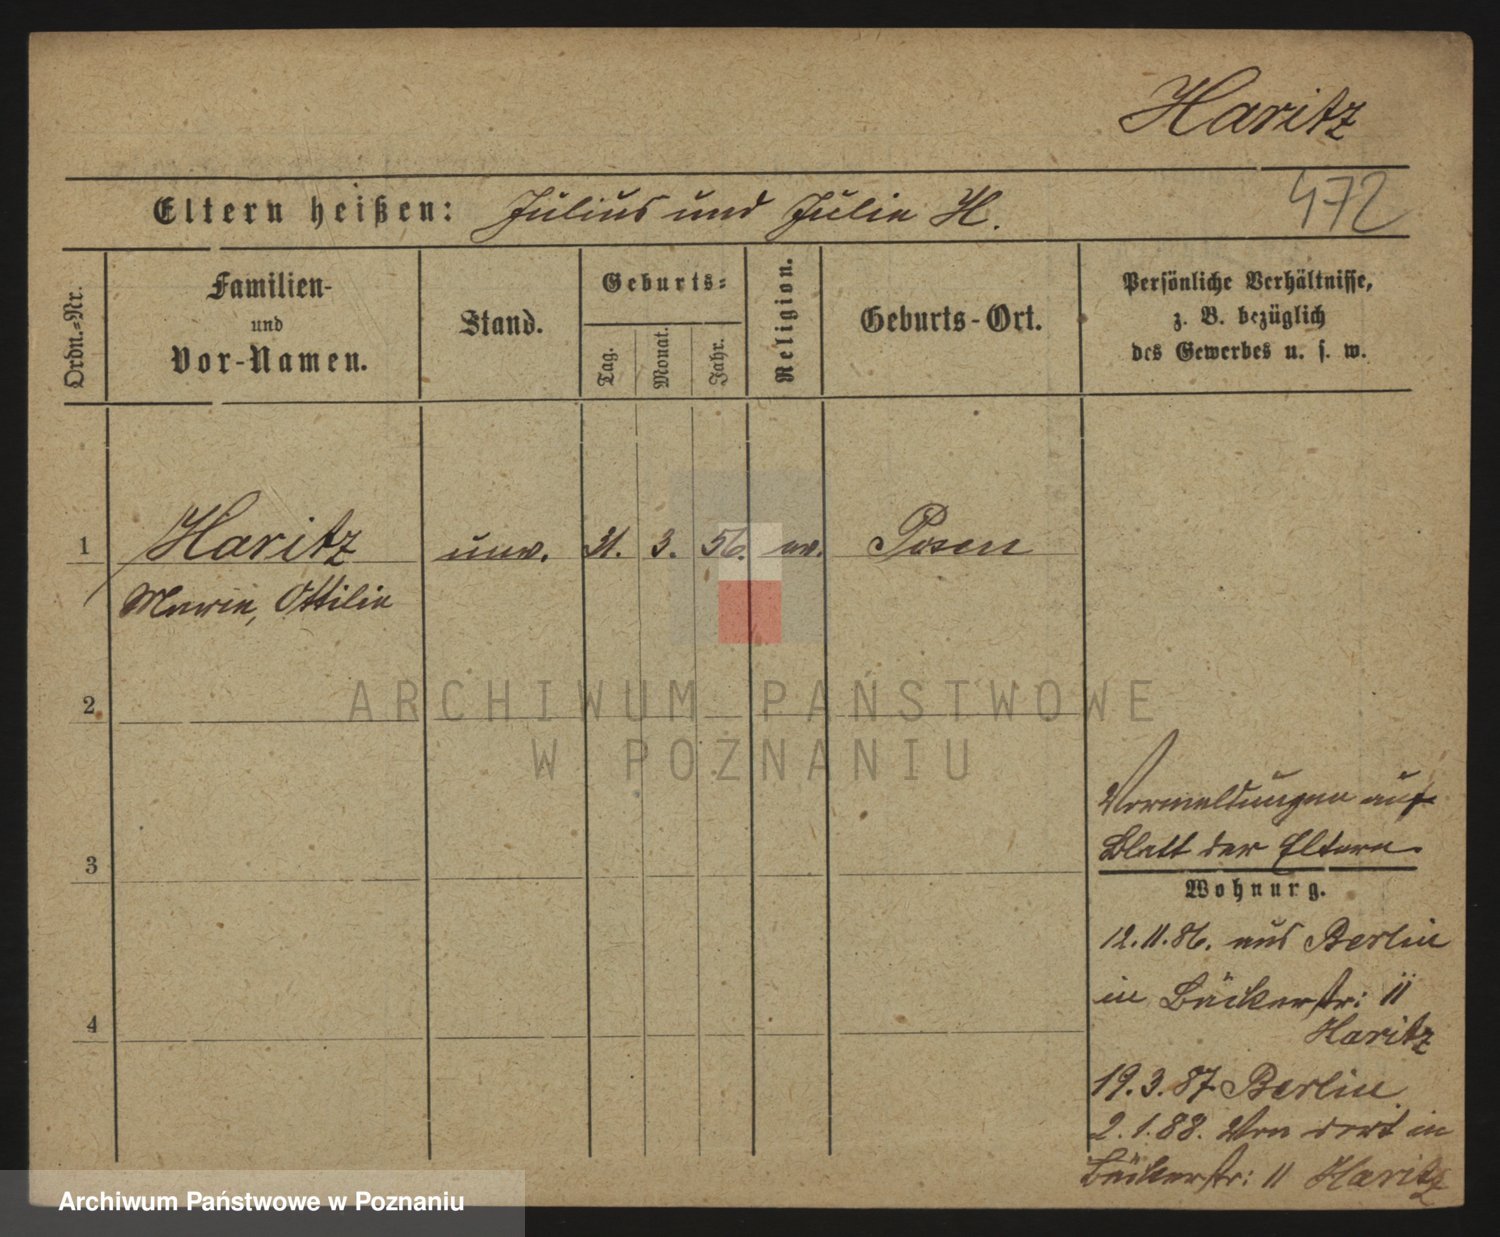 Haritz
Eltern heißen: Julius und Julie H.
472
Ordn.=Nr.
Familien-
und
Vor-Namen.
Stand.
Geburts=
Tag.
Monat.
Jahr.
Religion.
Geburts-Ort.
Persönliche Verhältnisse,
z. B. bezüglich
des Gewerbes u. s. w.
1 Haritz unv. 31. 3. 56. ev. Posen
Marie, Ottilie
2
ARCHIWUM PAŃSTWOWE
W POZNANIU
Vormeldungen auf
3 Blatt der Eltern.
Wohnung.
12.11.86. aus Berlin
in Bäckerstr: 11
4 Haritz
19.3.87. Berlin
2.1.88. Von dort in
Bäckerstr: 11 Haritz
Archiwum Państwowe w Poznaniu